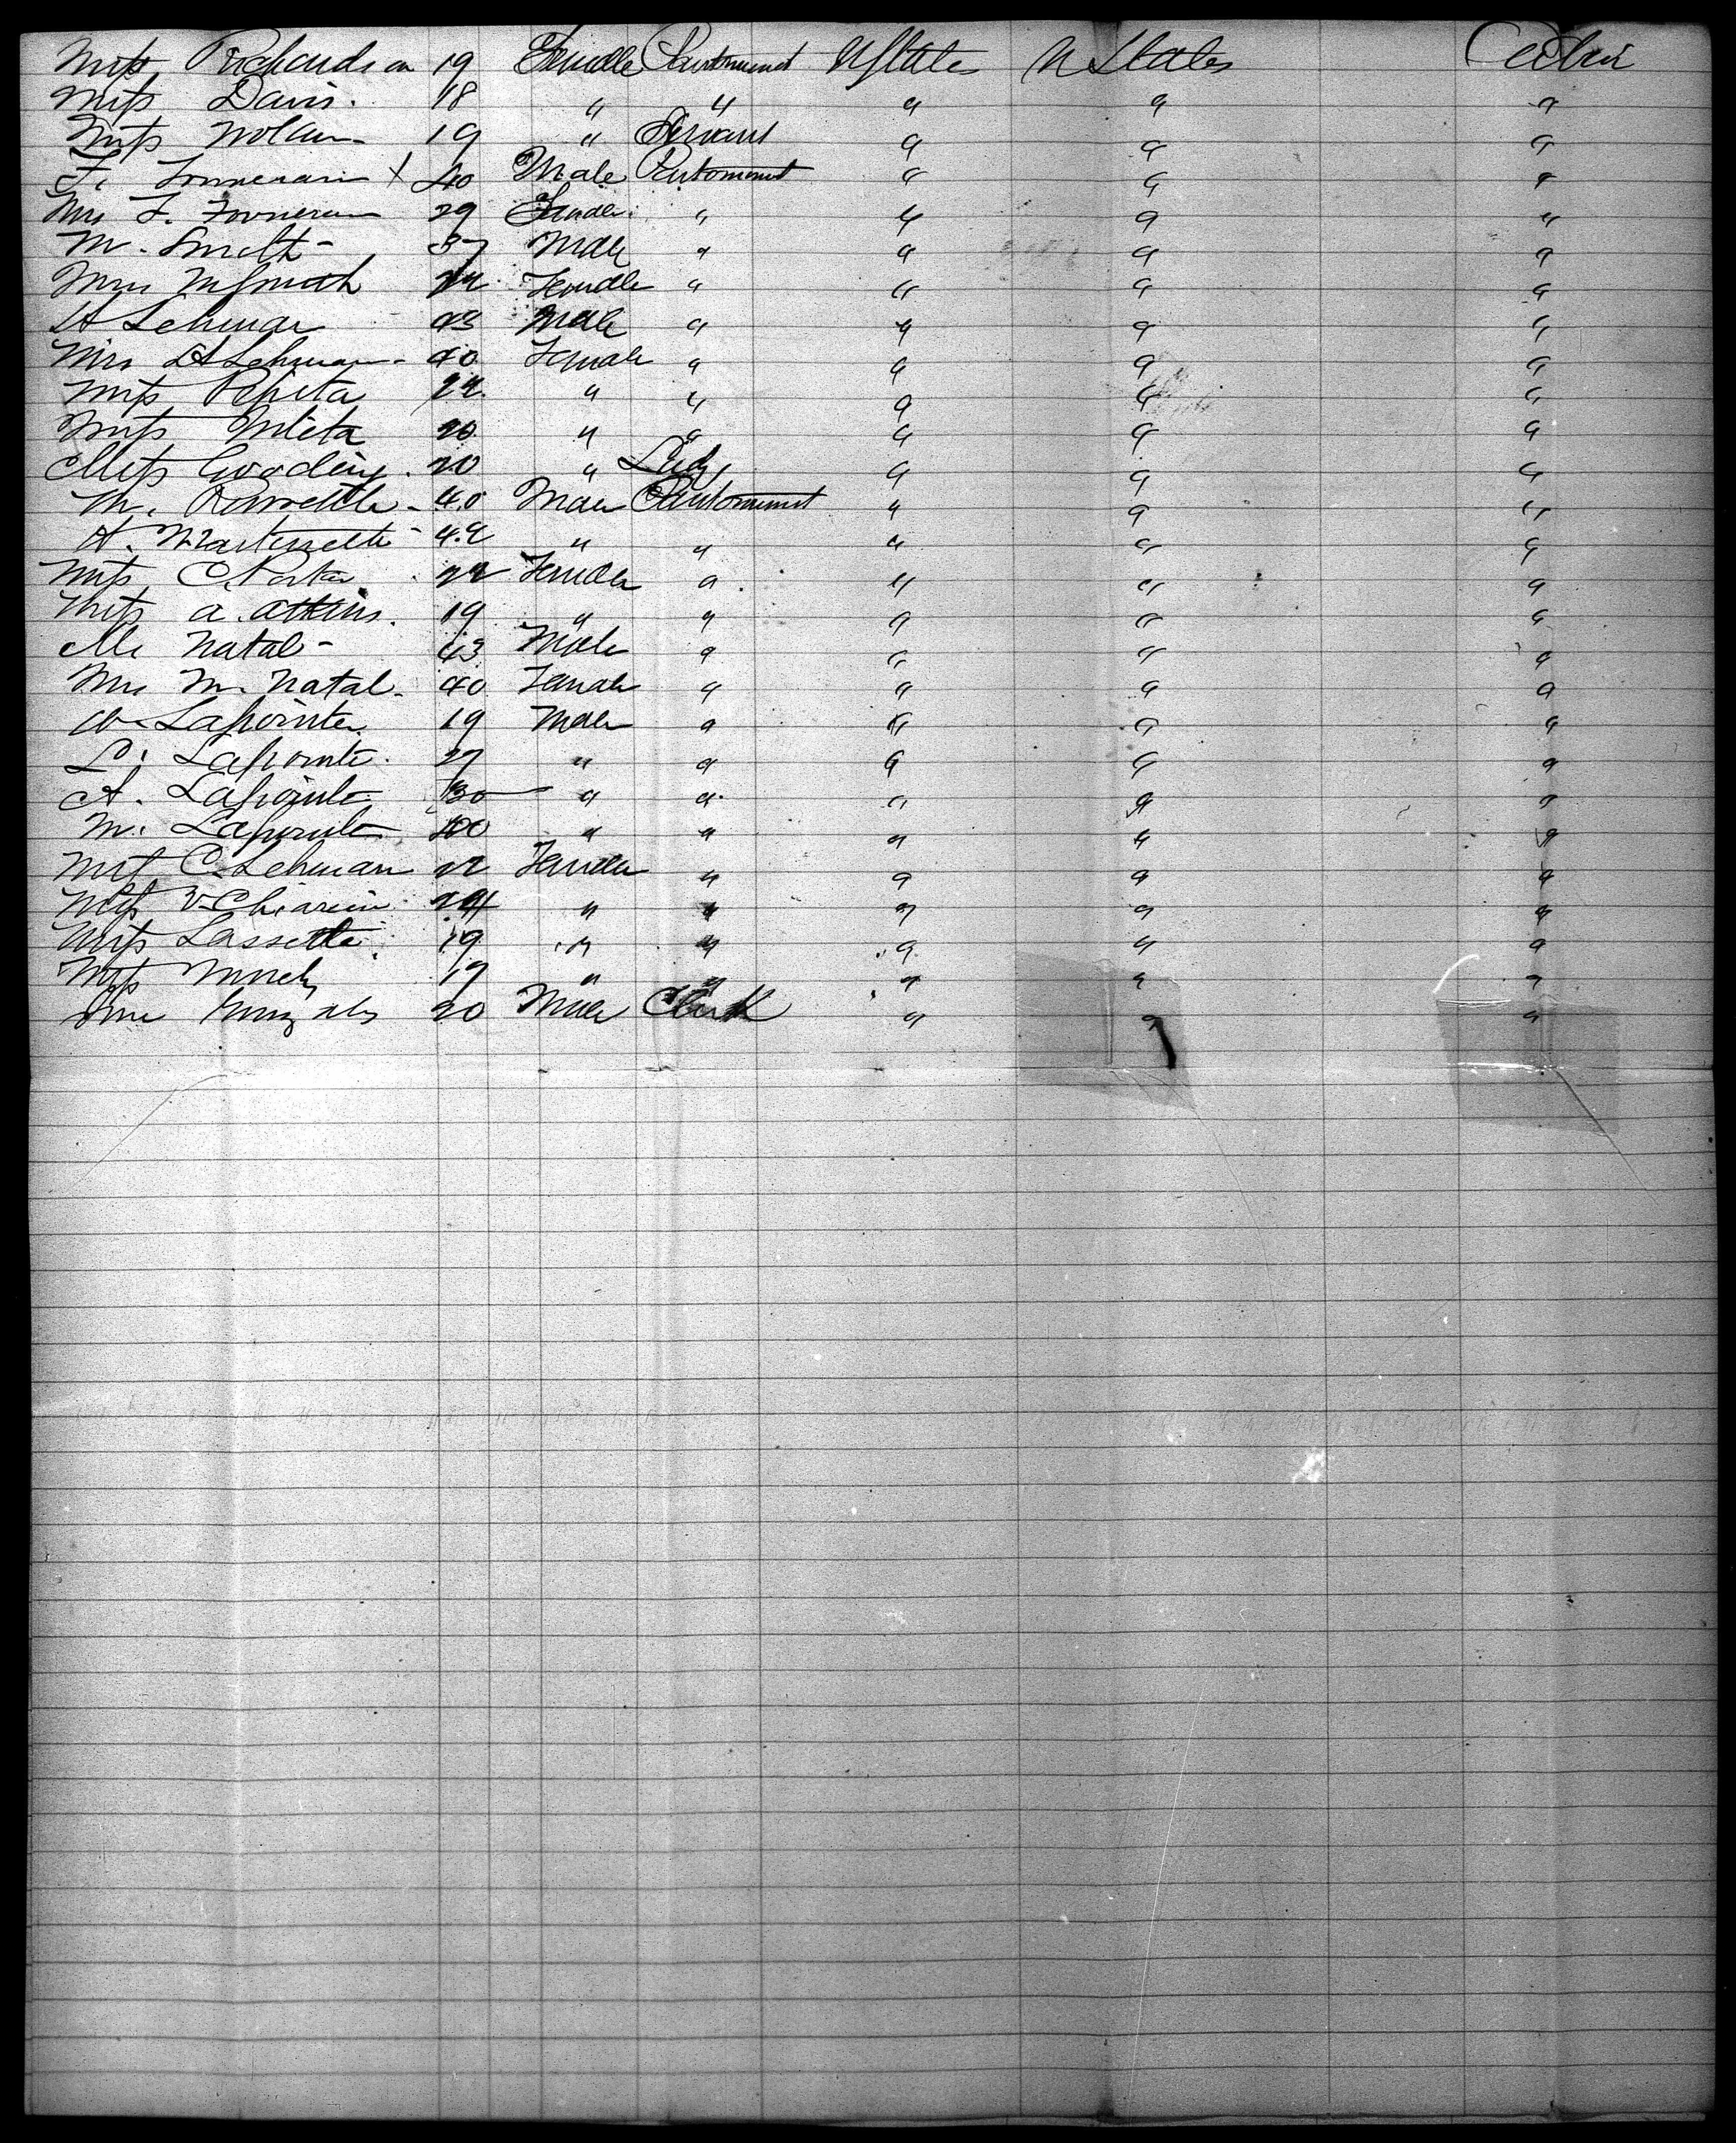 Miss Richardson 19 Female Pantomimist U States U States Cabin
Miss Davis. 18 " " " " "
Miss Nolan 19 " Servant " " "
F. X 40 Male Pantomimist " " "
Mrs F. 29 Female " " " "
M. Smith - 37 Male " " " "
Mrs M Smith Female " " " "
A Lehman 43 Male " " " "
Mrs A Lehman - 40 Female " " " "
Miss Pepita " " " " "
Miss 20 " " " " "
Miss Gooding. 20 " Lady " " "
M. - 40 Male Pantomimist " " "
A. Martinetti - " " " " "
Miss C. 22 Female " " " "
Miss A. Atkins. 19 " " " " "
M Natal - 43 Male " " " "
Mrs M. Natal. 40 Female " " " "
Lapointe 19 Male " " " "
L. Lapointe. 27 " " " " "
A. Lapointe 30 " " " " "
M. Lapointe " " " " "
Miss C. Lehman 22 Female " " " "
Miss V. Chiarini 24 " " " " "
Miss Lassette 19 " " " " "
Miss 19 " " " " "
20 Male Clerk " " "